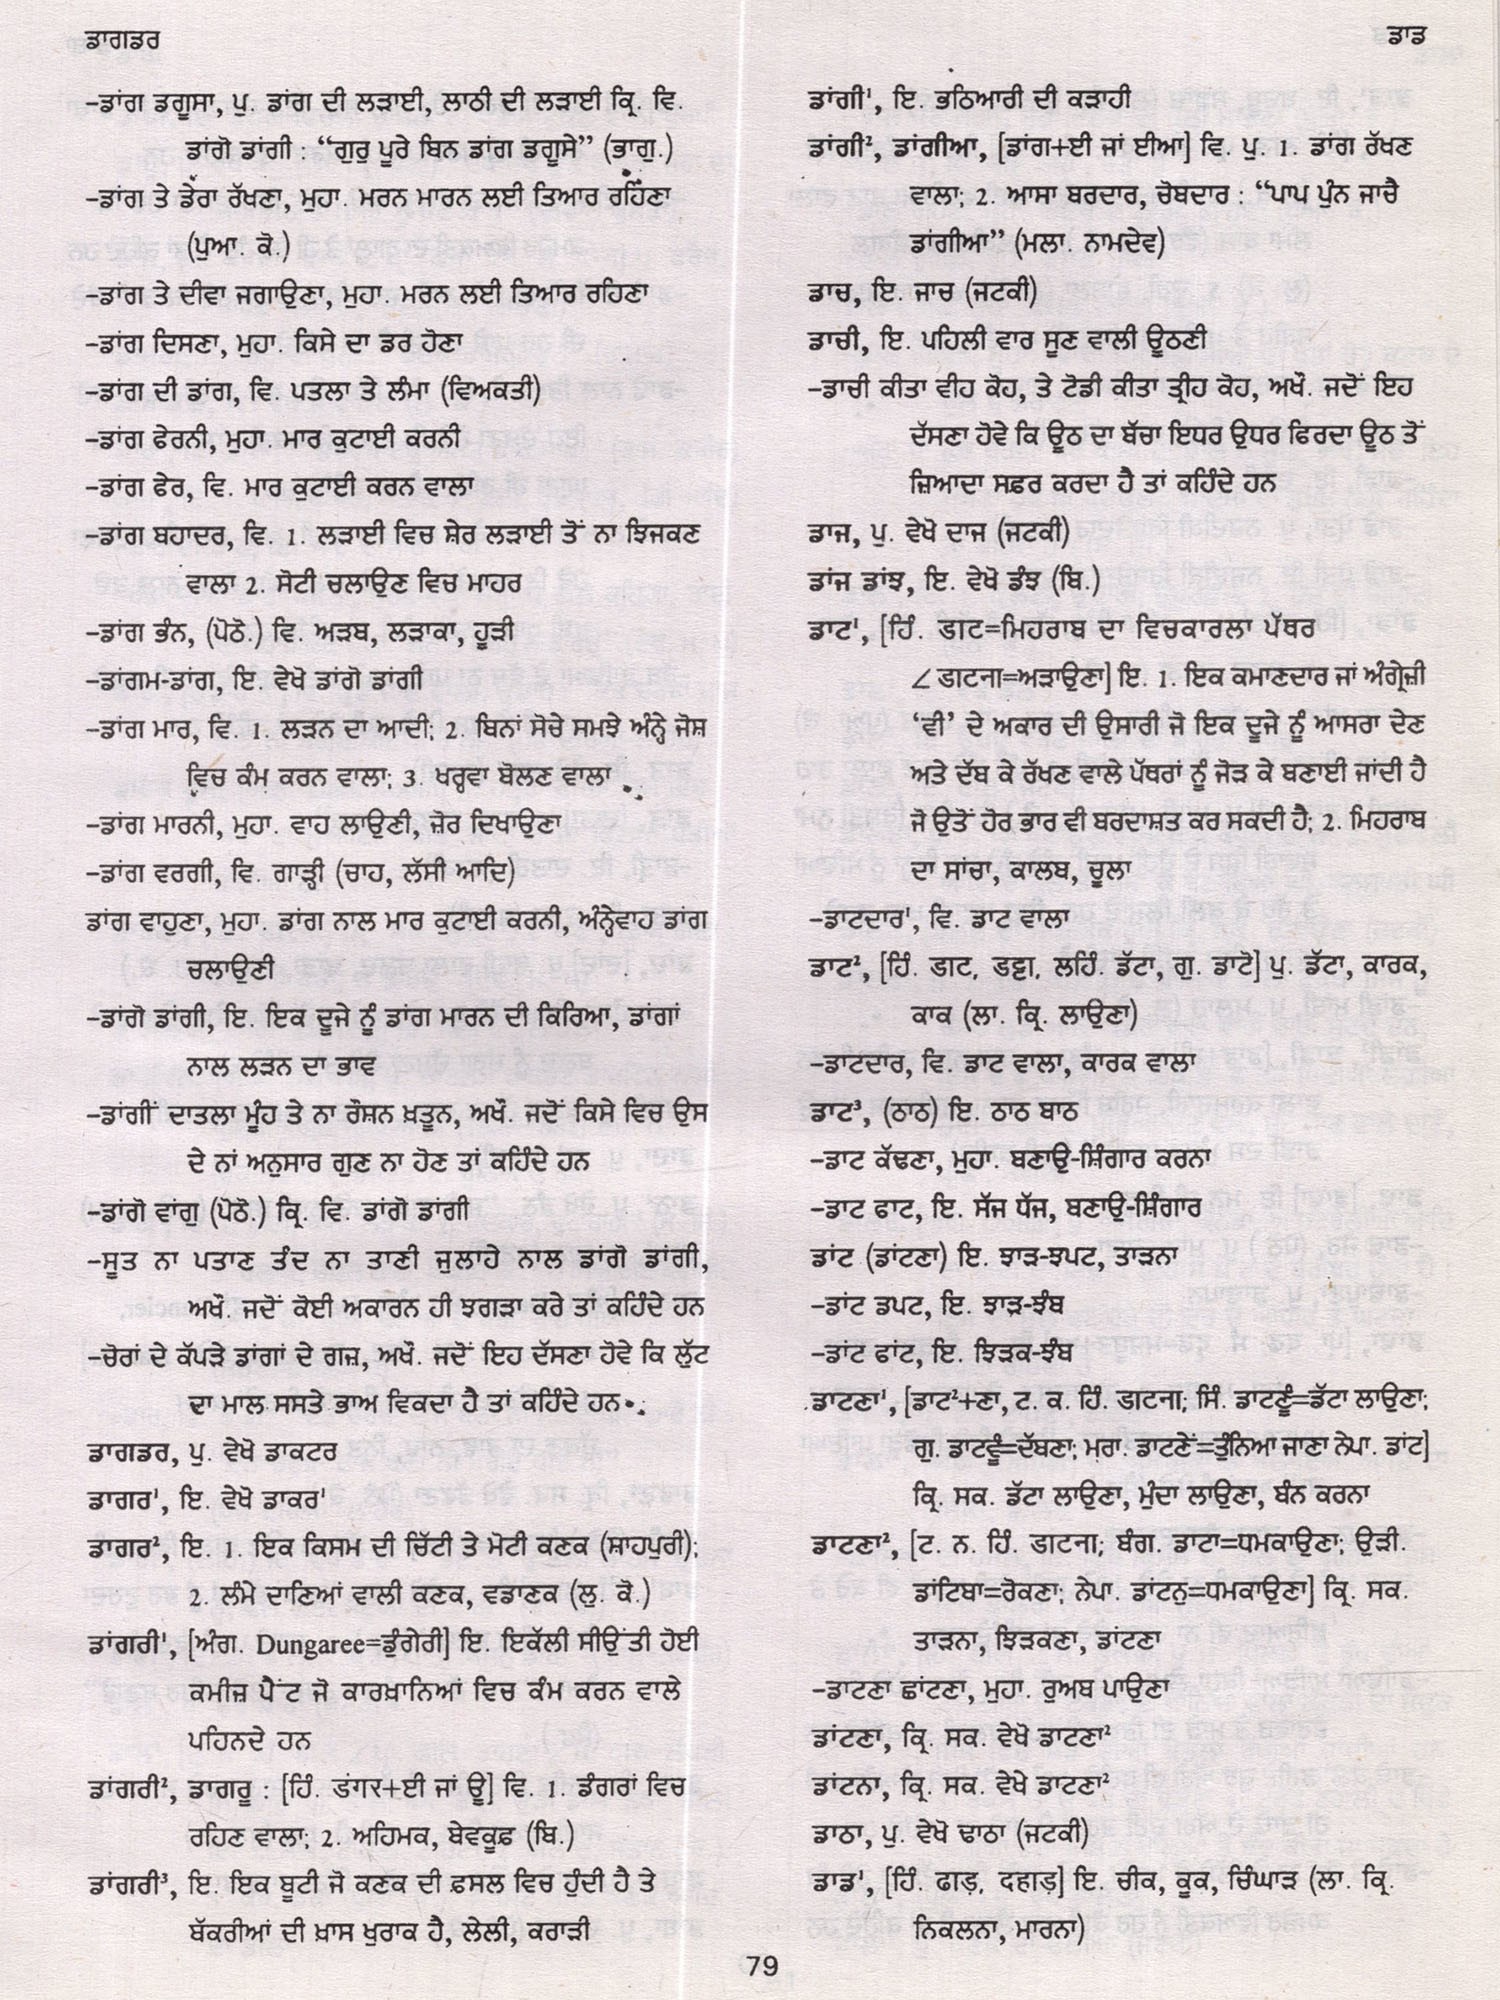 ਡਾਗਡਰ
ਡਾਡ
–ਡਾਂਗ ਡਗੂਸਾ, ਪੁ. ਡਾਂਗ ਦੀ ਲੜਾਈ, ਲਾਠੀ ਦੀ ਲੜਾਈ ਕ੍ਰਿ. ਵਿ.
ਡਾਂਗੋ ਡਾਂਗੀ : “ਗੁਰੁ ਪੂਰੇ ਬਿਨ ਡਾਂਗ ਡਗੂਸੇ” (ਭਾਗੁ.)
–ਡਾਂਗ ਤੇ ਡੇਰਾ ਰੱਖਣਾ, ਮੁਹਾ. ਮਰਨ ਮਾਰਨ ਲਈ ਤਿਆਰ ਰਹਿਣਾ
(ਪੁਆ. ਕੋ.)
–ਡਾਂਗ ਤੇ ਦੀਵਾ ਜਗਾਉਣਾ, ਮੁਹਾ. ਮਰਨ ਲਈ ਤਿਆਰ ਰਹਿਣਾ
–ਡਾਂਗ ਦਿਸਣਾ, ਮੁਹਾ. ਕਿਸੇ ਦਾ ਡਰ ਹੋਣਾ
–ਡਾਂਗ ਦੀ ਡਾਂਗ, ਵਿ. ਪਤਲਾ ਤੇ ਲੰਮਾ (ਵਿਅਕਤੀ)
–ਡਾਂਗ ਫੇਰਨੀ, ਮੁਹਾ. ਮਾਰ ਕੁਟਾਈ ਕਰਨੀ
–ਡਾਂਗ ਫੇਰ, ਵਿ. ਮਾਰ ਕੁਟਾਈ ਕਰਨ ਵਾਲਾ
–ਡਾਂਗ ਬਹਾਦਰ, ਵਿ. 1. ਲੜਾਈ ਵਿਚ ਸ਼ੇਰ ਲੜਾਈ ਤੋਂ ਨਾ ਝਿਜਕਣ
ਵਾਲਾ 2. ਸੋਟੀ ਚਲਾਉਣ ਵਿਚ ਮਾਹਰ
–ਡਾਂਗ ਭੰਨ, (ਪੋਠੋ.) ਵਿ. ਅੜਬ, ਲੜਾਕਾ, ਹੂੜੀ
–ਡਾਂਗਮ-ਡਾਂਗ, ਇ. ਵੇਖੋ ਡਾਂਗੋ ਡਾਂਗੀ
–ਡਾਂਗ ਮਾਰ, ਵਿ. 1. ਲੜਨ ਦਾ ਆਦੀ; 2. ਬਿਨਾਂ ਸੋਚੇ ਸਮਝੇ ਅੰਨ੍ਹੇ ਜੋਸ਼
ਵਿਚ ਕੰਮ ਕਰਨ ਵਾਲਾ; 3. ਖਰ੍ਹਵਾ ਬੋਲਣ ਵਾਲਾ
–ਡਾਂਗ ਮਾਰਨੀ, ਮੁਹਾ. ਵਾਹ ਲਾਉਣੀ, ਜ਼ੋਰ ਦਿਖਾਉਣਾ
–ਡਾਂਗ ਵਰਗੀ, ਵਿ. ਗਾੜ੍ਹੀ (ਚਾਹ, ਲੱਸੀ ਆਦਿ)
ਡਾਂਗ ਵਾਹੁਣਾ, ਮੁਹਾ. ਡਾਂਗ ਨਾਲ ਮਾਰ ਕੁਟਾਈ ਕਰਨੀ, ਅੰਨ੍ਹੇਵਾਹ ਡਾਂਗ
ਚਲਾਉਣੀ
–ਡਾਂਗੋ ਡਾਂਗੀ, ਇ. ਇਕ ਦੂਜੇ ਨੂੰ ਡਾਂਗ ਮਾਰਨ ਦੀ ਕਿਰਿਆ, ਡਾਂਗਾਂ
ਨਾਲ ਲੜਨ ਦਾ ਭਾਵ
–ਡਾਂਗੀਂ ਦਾਤਲਾ ਮੂੰਹ ਤੇ ਨਾ ਰੌਸ਼ਨ ਖ਼ਤੂਨ, ਅਖੌ. ਜਦੋਂ ਕਿਸੇ ਵਿਚ ਉਸ
ਦੇ ਨਾਂ ਅਨੁਸਾਰ ਗੁਣ ਨਾ ਹੋਣ ਤਾਂ ਕਹਿੰਦੇ ਹਨ
–ਡਾਂਗੋ ਵਾਂਗੁ (ਪੋਠੋ.) ਕ੍ਰਿ. ਵਿ. ਡਾਂਗੋ ਡਾਂਗੀ
–ਸੂਤ ਨਾ ਪਤਾਣ ਤੰਦ ਨਾ ਤਾਣੀ ਜੁਲਾਹੇ ਨਾਲ ਡਾਂਗੋ ਡਾਂਗੀ,
ਅਖੌ. ਜਦੋਂ ਕੋਈ ਅਕਾਰਨ ਹੀ ਝਗੜਾ ਕਰੇ ਤਾਂ ਕਹਿੰਦੇ ਹਨ
–ਚੋਰਾਂ ਦੇ ਕੱਪੜੇ ਡਾਂਗਾਂ ਦੇ ਗਜ਼, ਅਖੌ. ਜਦੋਂ ਇਹ ਦੱਸਣਾ ਹੋਵੇ ਕਿ ਲੁੱਟ
ਦਾ ਮਾਲ ਸਸਤੇ ਭਾਅ ਵਿਕਦਾ ਹੈ ਤਾਂ ਕਹਿੰਦੇ ਹਨ
ਡਾਗਡਰ, ਪੁ. ਵੇਖੋ ਡਾਕਟਰ
ਡਾਗਰ¹, ਇ. ਵੇਖੋ ਡਾਕਰ¹
ਡਾਗਰ², ਇ. 1. ਇਕ ਕਿਸਮ ਦੀ ਚਿੱਟੀ ਤੇ ਮੋਟੀ ਕਣਕ (ਸ਼ਾਹਪੁਰੀ);
2. ਲੰਮੇ ਦਾਣਿਆਂ ਵਾਲੀ ਕਣਕ, ਵਡਾਣਕ (ਲੁ. ਕੋ.)
ਡਾਂਗਰੀ¹, [ਅੰਗ. Dungaree=ਡੁੰਗੇਰੀ] ਇ. ਇਕੱਲੀ ਸੀਉਂਤੀ ਹੋਈ
ਕਮੀਜ਼ ਪੈਂਟ ਜੋ ਕਾਰਖ਼ਾਨਿਆਂ ਵਿਚ ਕੰਮ ਕਰਨ ਵਾਲੇ
ਪਹਿਨਦੇ ਹਨ
ਡਾਂਗਰੀ², ਡਾਗਰੂ : [ਹਿੰ. डंगर+ਈ ਜਾਂ ਊ] ਵਿ. 1. ਡੰਗਰਾਂ ਵਿਚ
ਰਹਿਣ ਵਾਲਾ; 2. ਅਹਿਮਕ, ਬੇਵਕੂਫ਼ (ਬਿ.)
ਡਾਂਗਰੀ³, ਇ. ਇਕ ਬੂਟੀ ਜੋ ਕਣਕ ਦੀ ਫ਼ਸਲ ਵਿਚ ਹੁੰਦੀ ਹੈ ਤੇ
ਬੱਕਰੀਆਂ ਦੀ ਖ਼ਾਸ ਖੁਰਾਕ ਹੈ, ਲੇਲੀ, ਕਰਾੜੀ
ਡਾਂਗੀ¹, ਇ. ਭਠਿਆਰੀ ਦੀ ਕੜਾਹੀ
ਡਾਂਗੀ², ਡਾਂਗੀਆ, [ਡਾਂਗ+ਈ ਜਾਂ ਈਆ] ਵਿ. ਪੁ. 1. ਡਾਂਗ ਰੱਖਣ
ਵਾਲਾ; 2. ਆਸਾ ਬਰਦਾਰ, ਚੋਬਦਾਰ : “ਪਾਪ ਪੁੰਨ ਜਾਚੈ
ਡਾਂਗੀਆ” (ਮਲਾ. ਨਾਮਦੇਵ)
ਡਾਚ, ਇ. ਜਾਚ (ਜਟਕੀ)
ਡਾਚੀ, ਇ. ਪਹਿਲੀ ਵਾਰ ਸੂਣ ਵਾਲੀ ਊਠਣੀ
–ਡਾਚੀ ਕੀਤਾ ਵੀਹ ਕੋਹ, ਤੇ ਟੋਡੀ ਕੀਤਾ ਤ੍ਰੀਹ ਕੋਹ, ਅਖੌ. ਜਦੋਂ ਇਹ
ਦੱਸਣਾ ਹੋਵੇ ਕਿ ਊਠ ਦਾ ਬੱਚਾ ਇਧਰ ਉਧਰ ਫਿਰਦਾ ਊਠ ਤੋਂ
ਜ਼ਿਆਦਾ ਸਫ਼ਰ ਕਰਦਾ ਹੈ ਤਾਂ ਕਹਿੰਦੇ ਹਨ
ਡਾਜ, ਪੁ. ਵੇਖੋ ਦਾਜ (ਜਟਕੀ)
ਡਾਂਜ ਡਾਂਝ, ਇ. ਵੇਖੋ ਡੰਝ (ਬਿ.)
ਡਾਟ¹, [ਹਿੰ. डाट=ਮਿਹਰਾਬ ਦਾ ਵਿਚਕਾਰਲਾ ਪੱਥਰ
∠ डाटना=ਅੜਾਉਣਾ] ਇ. 1. ਇਕ ਕਮਾਣਦਾਰ ਜਾਂ ਅੰਗ੍ਰੇਜ਼ੀ
‘ਵੀ’ ਦੇ ਅਕਾਰ ਦੀ ਉਸਾਰੀ ਜੋ ਇਕ ਦੂਜੇ ਨੂੰ ਆਸਰਾ ਦੇਣ
ਅਤੇ ਦੱਬ ਕੇ ਰੱਖਣ ਵਾਲੇ ਪੱਥਰਾਂ ਨੂੰ ਜੋੜ ਕੇ ਬਣਾਈ ਜਾਂਦੀ ਹੈ
ਜੋ ਉਤੋਂ ਹੋਰ ਭਾਰ ਵੀ ਬਰਦਾਸ਼ਤ ਕਰ ਸਕਦੀ ਹੈ; 2. ਮਿਹਰਾਬ
ਦਾ ਸਾਂਚਾ, ਕਾਲਬ, ਚੂਲਾ
–ਡਾਟਦਾਰ¹, ਵਿ. ਡਾਟ ਵਾਲਾ
ਡਾਟ², [ਹਿੰ. डाट, डट्टा, ਲਹਿੰ. ਡੱਟਾ, ਗੁ. ਡਾਟੋ] ਪੁ. ਡੱਟਾ, ਕਾਰਕ,
ਕਾਕ (ਲਾ. ਕ੍ਰਿ. ਲਾਉਣਾ)
–ਡਾਟਦਾਰ, ਵਿ. ਡਾਟ ਵਾਲਾ, ਕਾਰਕ ਵਾਲਾ
ਡਾਟ³, (ਠਾਠ) ਇ. ਠਾਠ ਬਾਠ
–ਡਾਟ ਕੱਢਣਾ, ਮੁਹਾ. ਬਣਾਉ-ਸ਼ਿੰਗਾਰ ਕਰਨਾ
–ਡਾਟ ਫਾਟ, ਇ. ਸੱਜ ਧੱਜ, ਬਣਾਉ-ਸ਼ਿੰਗਾਰ
ਡਾਂਟ (ਡਾਂਟਣਾ) ਇ. ਝਾੜ-ਝਪਟ, ਤਾੜਨਾ
–ਡਾਂਟ ਡਪਟ, ਇ. ਝਾੜ-ਝੰਬ
–ਡਾਂਟ ਫਾਂਟ, ਇ. ਝਿੜਕ-ਝੰਬ
ਡਾਟਣਾ¹, [ਡਾਟ²+ਣਾ, ਟ. ਕ. ਹਿੰ. डाटना; ਸਿੰ. ਡਾਟਣੂੰ=ਡੱਟਾ ਲਾਉਣਾ;
ਗੁ. ਡਾਟਵੂੰ=ਦੱਬਣਾ; ਮਰਾ. ਡਾਟਣੇਂ=ਤੁੰਨਿਆ ਜਾਣਾ ਨੇਪਾ. ਡਾਂਟ]
ਕ੍ਰਿ. ਸਕ. ਡੱਟਾ ਲਾਉਣਾ, ਮੁੰਦਾ ਲਾਉਣਾ, ਬੰਨ ਕਰਨਾ
ਡਾਟਣਾ², [ਟ. ਨ. ਹਿੰ. डाटना; ਬੰਗ. ਡਾਟਾ=ਧਮਕਾਉਣਾ; ਉੜੀ.
ਡਾਂਟਿਬਾ=ਰੋਕਣਾ; ਨੇਪਾ. ਡਾਂਟਨੁ=ਧਮਕਾਉਣਾ] ਕ੍ਰਿ. ਸਕ.
ਤਾੜਨਾ, ਝਿੜਕਣਾ, ਡਾਂਟਣਾ
–ਡਾਟਣਾ ਛਾਂਟਣਾ, ਮੁਹਾ. ਰੁਅਬ ਪਾਉਣਾ
ਡਾਂਟਣਾ, ਕ੍ਰਿ. ਸਕ. ਵੇਖੋ ਡਾਟਣਾ²
ਡਾਂਟਨਾ, ਕ੍ਰਿ. ਸਕ. ਵੇਖੇ ਡਾਟਣਾ²
ਡਾਠਾ, ਪੁ. ਵੇਖੋ ਢਾਠਾ (ਜਟਕੀ)
ਡਾਡ¹, [ਹਿੰ. ढाड़, दहाड़] ਇ. ਚੀਕ, ਕੂਕ, ਚਿੰਘਾੜ (ਲਾ. ਕ੍ਰਿ.
ਨਿਕਲਨਾ, ਮਾਰਨਾ)
79